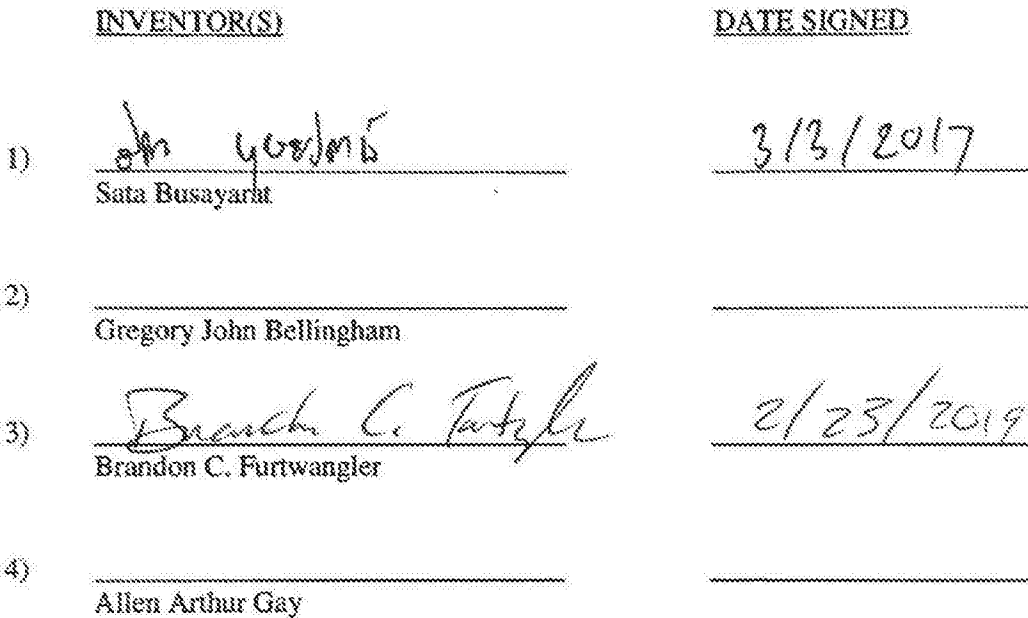 INVENTOR(S) DATE SIGNED
1) 3/3/2017
Sata Busayarat
2)
Gregory John Bellingham
3) Brandon C. 2/23/2019
Brandon C. Furtwangler
4)
Allen Arthur Gay